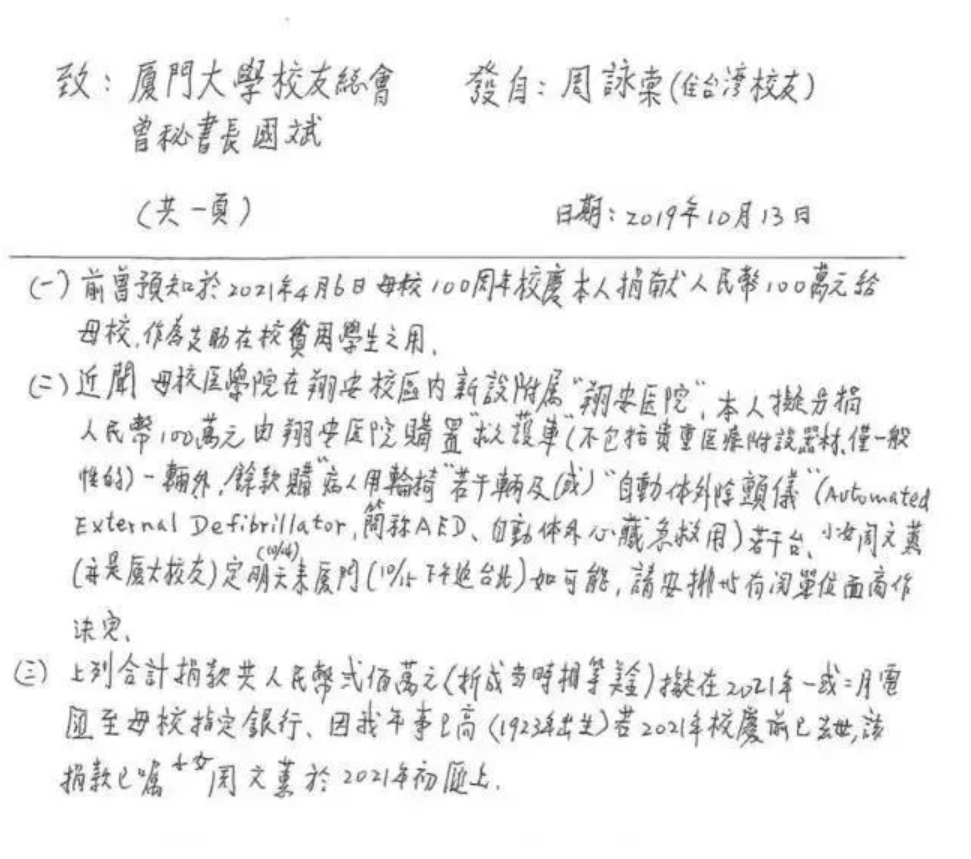 致：厦門大學校友総會 發自：周詠棠(住台湾校友)
曾秘書長國斌
(共一頁) 日期：2019年10月13日
(一)前曾預知於2021年4月6日母校100周年校慶本人捐献人民幣100萬元給
母校,作為支助在校貧困學生之用.
(二)近聞母校医學院在翔安校區内新設附属"翔安医院",本人擬另捐
人民幣100萬元由翔安医院購置"救護車"(不包括貴重医療附設器材,僅一般
性的)一輛外,餘款購"病人用輪椅"若干輛及(或)"自動体外除顫儀"(Automated
External Defibrillator,簡称AED、自動体外心臓急救用)若干台、小女周文蕙
(亦是厦大校友)定明天(10/14)来厦門(10/15下午返台北)如可能,請安排與有関單位面商作
決定.
(三)上列合計捐款共人民幣弍佰萬元(折成当時相等美金)擬在2021年一或二月電
匯至母校指定銀行、因我年事已高(1923年出生)若2021年校慶前已去世,該
捐款已嘱小女周文蕙於2021年初匯上.